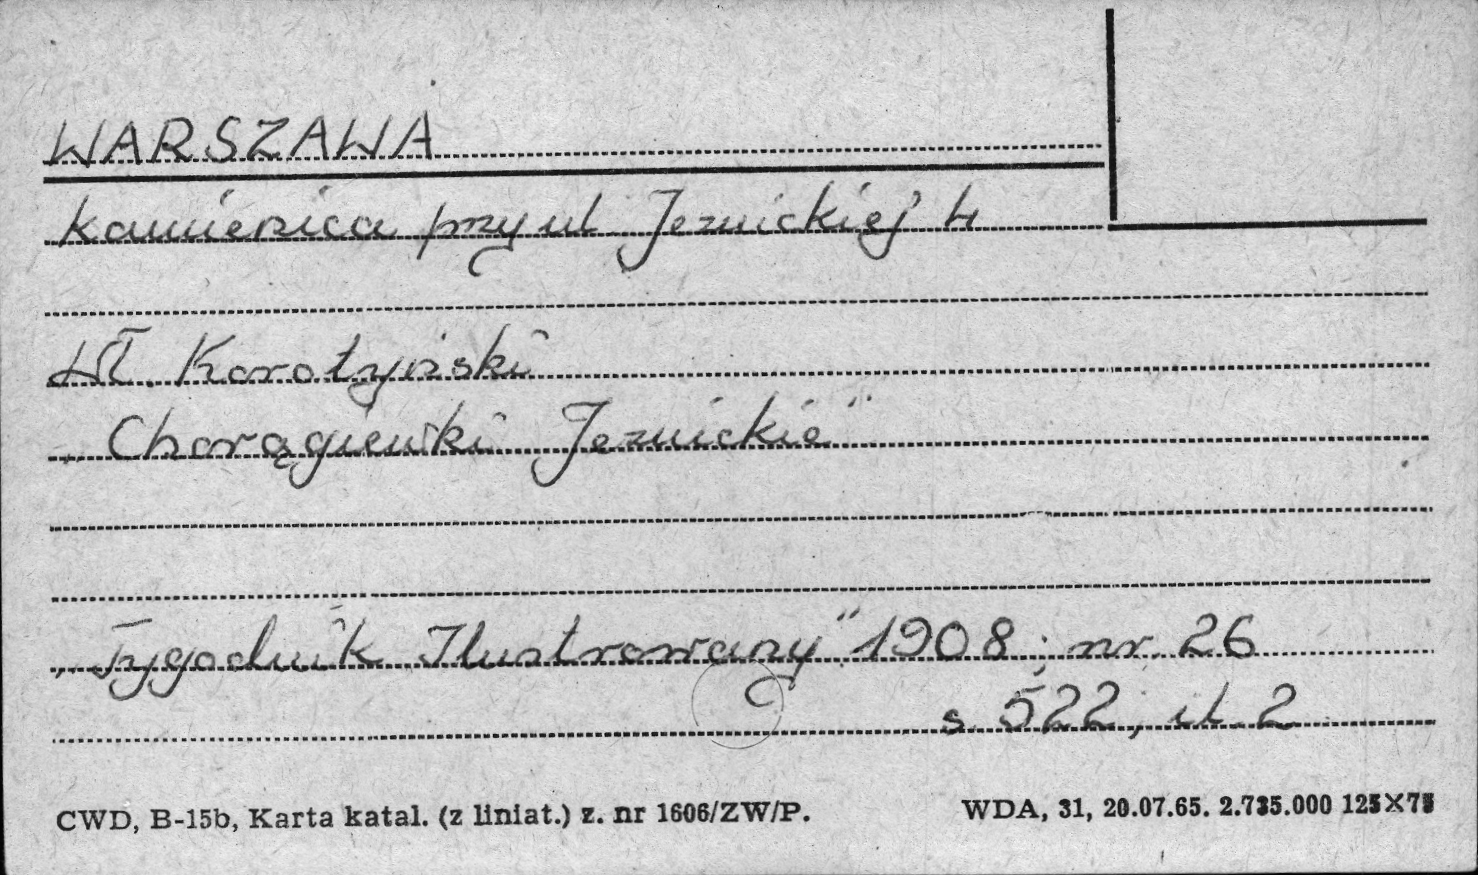 WARSZAWA
kamienica przy ul Jezuickiej 4
Wł. Korotyński
„Chorągiewki Jezuickie"
„Tygodnik Ilustrowany" 1908; nr. 26
s. 522, il. 2
CWD, B-15b, Karta katal. (z liniat.) z. nr 1606/ZW/P.
WDA, 31, 20.07.65. 2.735.000 125×75